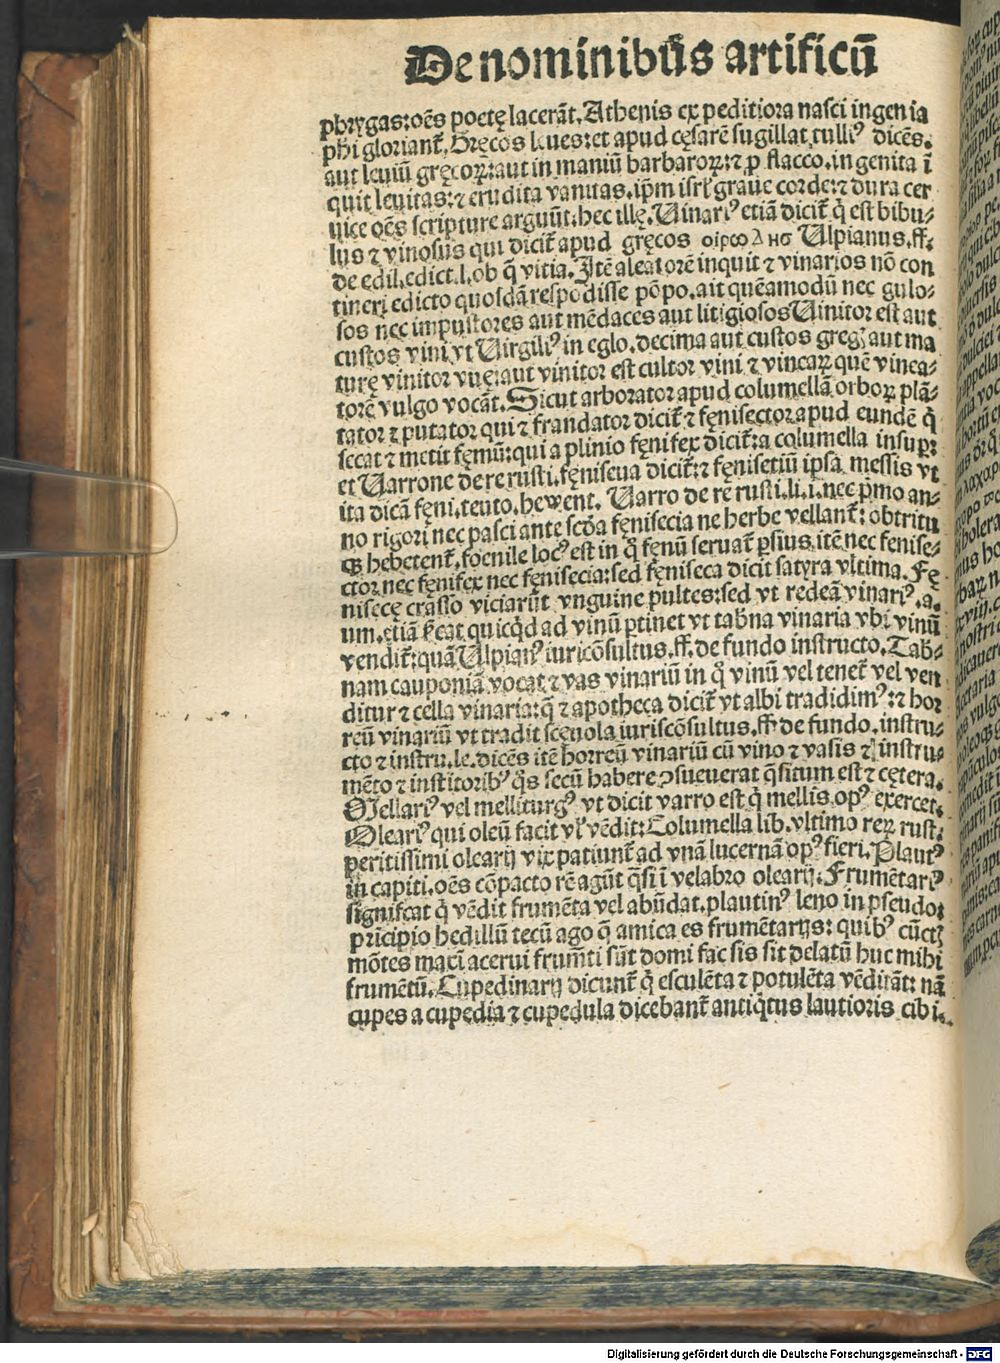 De nominibus artificū
phrygas: oēs poetę lacerāt. Athenis expeditiora nasci ingenia
phi gloriant᷑. Gręcos leues: et apud cęsarē sugillat tulliꝰ dicēs.
aut leuiū gręcoꝝ: aut in maniū barbaroꝝ: ⁊ ꝓ flacco. ingenita ī
quit leuitas: ⁊ erudita vanitas. ipm isrl᷑ graue corde: ⁊ dura cer
uice oēs scripture arguūt. hec illę. Uinariꝰ etiā dicit᷑ q̇ est bibu⸗
lus ⁊ vinosus qui dicit᷑ apud gręcos Ulpianus. ff.
de edil. edict. l. ob q̄ vitia. Itē aleatorē inquit ⁊ vinarios nō con
tineri edicto quosdā respōdisse pōpo. ait quēamodū nec gulo⸗
sos nec impostores aut mēdaces aut litigiosos Uinitor est aut
custos vini vt Uirgiliꝰ in eglo. decima aut custos gregꝭ aut ma
turę vinitor vuę: aut vinitor est cultor vini ⁊ vineaꝝ quē vinea⸗
torē vulgo vocāt. Sicut arborator apud columellā orboꝝ plā⸗
tator ⁊ putator qui ⁊ frandator dicit᷑ ⁊ fęnisector apud eundē q̇
secat ⁊ metit fęnū: qui a plinio fęnifex dicit᷑: a columella insuꝑ:
et Uarrone de re rusti. fęniseua dicit᷑: ⁊ fęnisetiū ipsa messis vt
ita dicā fęni. Uarro de re rusti. li. i. nec pͥmo an⸗
no rigori nec pasci ante scd̄a fęnisecia ne herbe vellant᷑: obtritu
qꝫ hebetent᷑. foenile locꝰ est in q̊ fenū seruat᷑ ꝑsius. itē nec fenise⸗
ctor nec fęnifex nec fęnisecia: sed fęniseca dicit satyra vltima. Fę
nisecę crasso viciarūt vnguine pultes: sed vt redeā vinariꝰ. a.
um. etiā sͥcat quicq̇d ad vinū ꝑtinet vt tabn̄a vinaria vbi vinū
vendit᷑: quā Ulpianꝰ iuricōsultus. ff. de fundo instructo. Tab⸗
nam cauponiā vocat ⁊ vas vinariū in q̊ vinū vel tenet᷑ vel ven
ditur ⁊ cella vinaria: q̄ ⁊ apotheca dicit᷑ vt albi tradidimꝰ: ⁊ hor
reū vinariū vt tradit scęuola iuriscōsultus. ff. de fundo. instru⸗
cto ⁊ instru. le. dicēs itē horreū vinariū cū vino ⁊ vasis ⁊ instru⸗
mēto ⁊ institoribꝰ q̊s secū habere ꝯsueuerat q̄situm est ⁊ cętera.
Mellariꝰ vel melliturgꝰ vt dicit varro est q̇ mellis opꝰ exercet.
Oleariꝰ qui oleū facit vl᷑ vēdit: Columella lib. vltimo reꝝ rust.
peritissimi olearij vix patiunt᷑ ad vnā lucernā opꝰ fieri. Plautꝰ
in capiti. oēs cōpacto rē agūt q̄si ī velabro olearij. Frumētariꝰ
significat q̇ vēdit frumēta vel abūdat. plautinꝰ leno in pseudo:
prīcipio hedillū tecū ago q̄ amica es frumētarijs: quibꝰ cūctꝭ
mōtes maxī acerui frumn̄ti sūt domi fac sis sit delatū huc mihi
frumētū. Cupedinarij dicunt᷑ q̇ esculēta ⁊ potulēta vēditāt: nā
cupes a cupedia ⁊ cupedula dicebant᷑ antiq̇tus lautioris cibi.
Digitalisierung gefördert durch die Deutsche Forschungsgemeinschaft - DFG